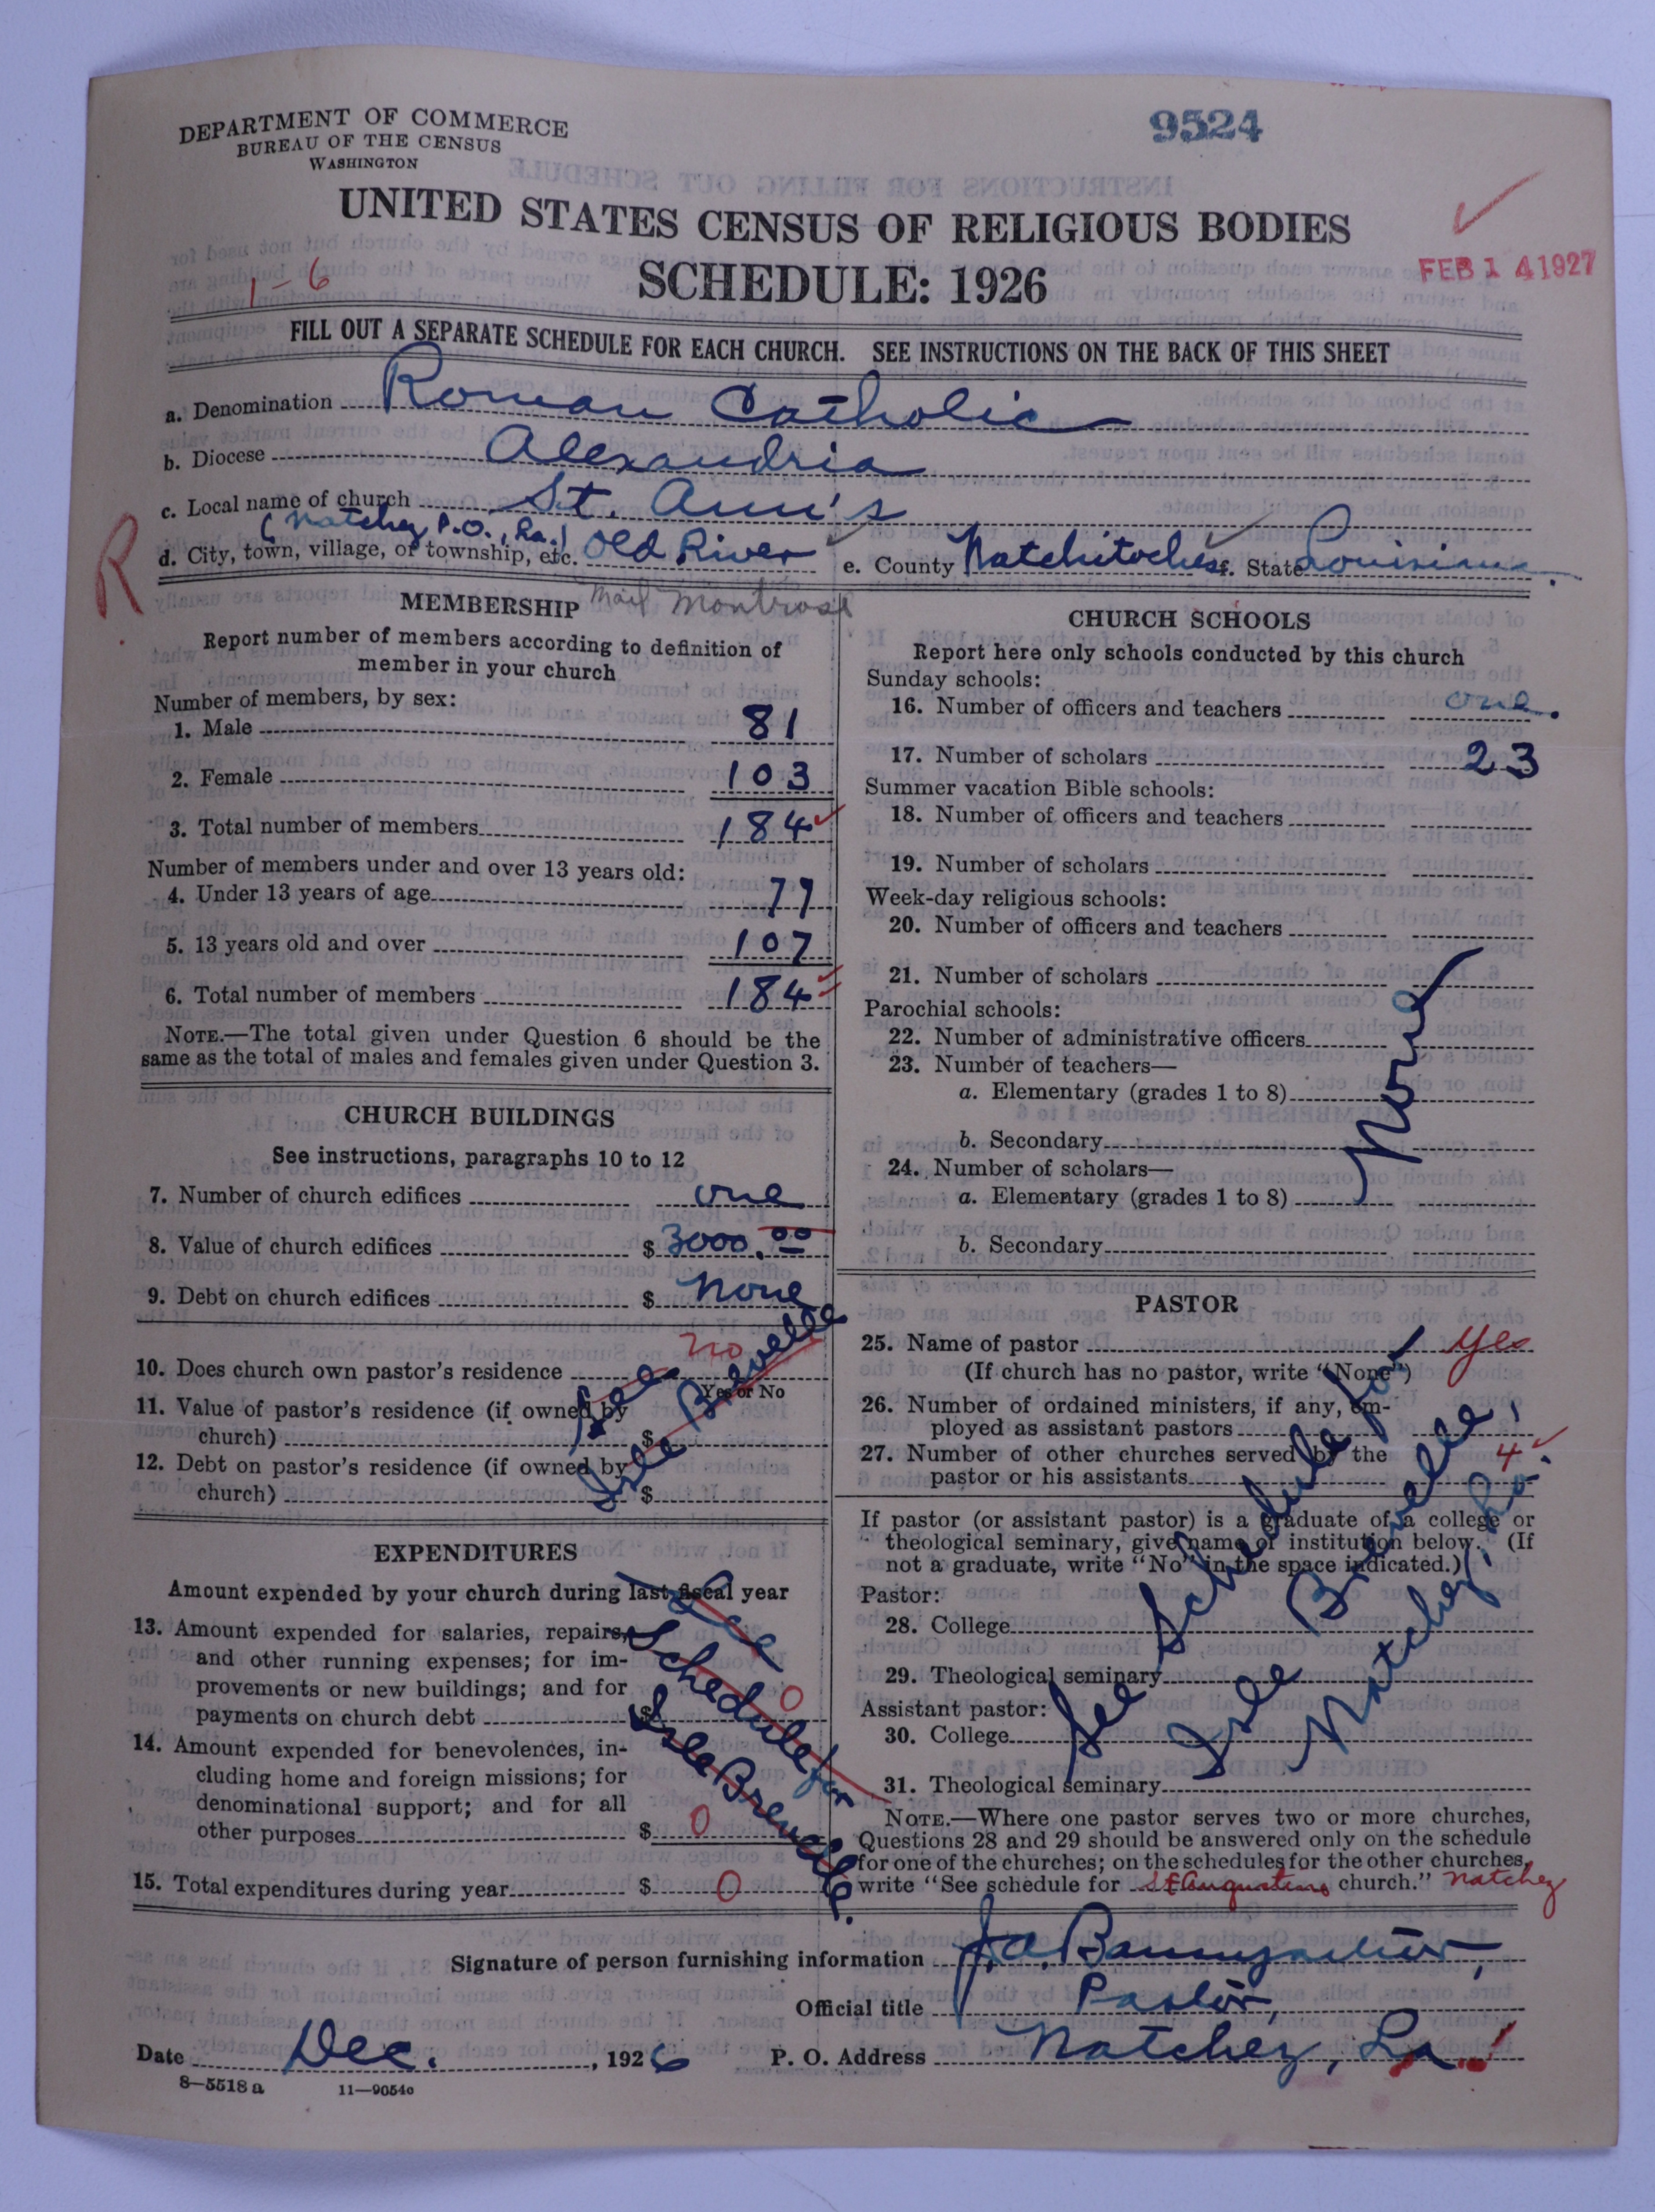 DEPARTMENT OF COMMERCE
BUREAU OF THE CENSUS
WASHINGTON
9524
UNITED STATES CENSUS OF RELIGIOUS BODIES
SCHEDULE: 1926
1-6
FEB 14 1927
FILL OUT A SEPARATE SCHEDULE FOR EACH CHURCH. SEE INSTRUCTIONS ON THE BACK OF THIS SHEET
a. Denomination Roman Catholic
b. Diocese Alexandria
c. Local name of church St. Ann's
(Natchez P.O., La.)
R
d. City, town, village, or township, etc. Old River e. County Natchitoches f. State Louisiana.
Mail Montrose
MEMBERSHIP
Report number of members according to definition of
member in your church
Number of members, by sex:
1. Male 81
2. Female 103
3. Total number of members 184
Number of members under and over 13 years old:
4. Under 13 years of age 77
5. 13 years old and over 107
6. Total number of members 184
NOTE.—The total given under Question 6 should be the
same as the total of males and females given under Question 3.
CHURCH BUILDINGS
See instructions, paragraphs 10 to 12
7. Number of church edifices one
8. Value of church edifices $ 3000.00
9. Debt on church edifices $ none
10. Does church own pastor's residence no
Yes or No
11. Value of pastor's residence (if owned by
church) $
12. Debt on pastor's residence (if owned by
church) $
See
Isle Brevelle
EXPENDITURES
Amount expended by your church during last fiscal year
13. Amount expended for salaries, repairs,
and other running expenses; for im-
provements or new buildings; and for
payments on church debt $ 0
14. Amount expended for benevolences, in-
cluding home and foreign missions; for
denominational support; and for all
other purposes $ 0
15. Total expenditures during year $ 0
See
Schedule for
Isle Brevelle.
CHURCH SCHOOLS
Report here only schools conducted by this church
Sunday schools:
16. Number of officers and teachers one.
17. Number of scholars 23
Summer vacation Bible schools:
18. Number of officers and teachers
19. Number of scholars
Week-day religious schools:
20. Number of officers and teachers
21. Number of scholars
Parochial schools:
22. Number of administrative officers
23. Number of teachers—
a. Elementary (grades 1 to 8)
b. Secondary
24. Number of scholars—
a. Elementary (grades 1 to 8)
b. Secondary
None
PASTOR
25. Name of pastor yes
(If church has no pastor, write "None")
26. Number of ordained ministers, if any, em-
ployed as assistant pastors
27. Number of other churches served by the
pastor or his assistants 4
If pastor (or assistant pastor) is a graduate of a college or
theological seminary, give name of institution below. (If
not a graduate, write "No" in the space indicated.)
Pastor:
28. College
29. Theological seminary
Assistant pastor:
30. College
31. Theological seminary
See Schedule for
Isle Brevelle,
Natchez, La.
NOTE.—Where one pastor serves two or more churches,
Questions 28 and 29 should be answered only on the schedule
for one of the churches; on the schedules for the other churches,
write "See schedule for St Augustine church." Natchez
Signature of person furnishing information J. A. Baumgartner,
Official title Pastor,
Date Dec., 1926 P. O. Address Natchez, La.
8—5518 a 11—9054c